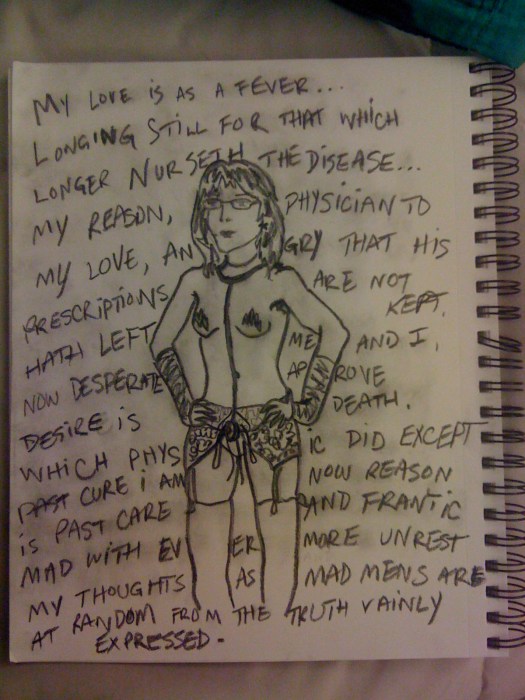 MY LOVE IS AS A FEVER...
LONGING STILL FOR THAT WHICH
LONGER NURSETH THE DISEASE...
MY REASON, PHYSICIAN TO
MY LOVE, ANGRY THAT HIS
PRESCRIPTIONS ARE NOT KEPT,
HATH LEFT ME AND I,
NOW DESPERATE APROVE
DESIRE IS DEATH.
WHICH PHYSIC DID EXCEPT
PAST CURE i AM NOW REASON
IS PAST CARE AND FRANTIC
MAD WITH EVER MORE UNREST
MY THOUGHTS AS MAD MENS ARE
AT RANDOM FROM THE TRUTH VAINLY
EXPRESSED-